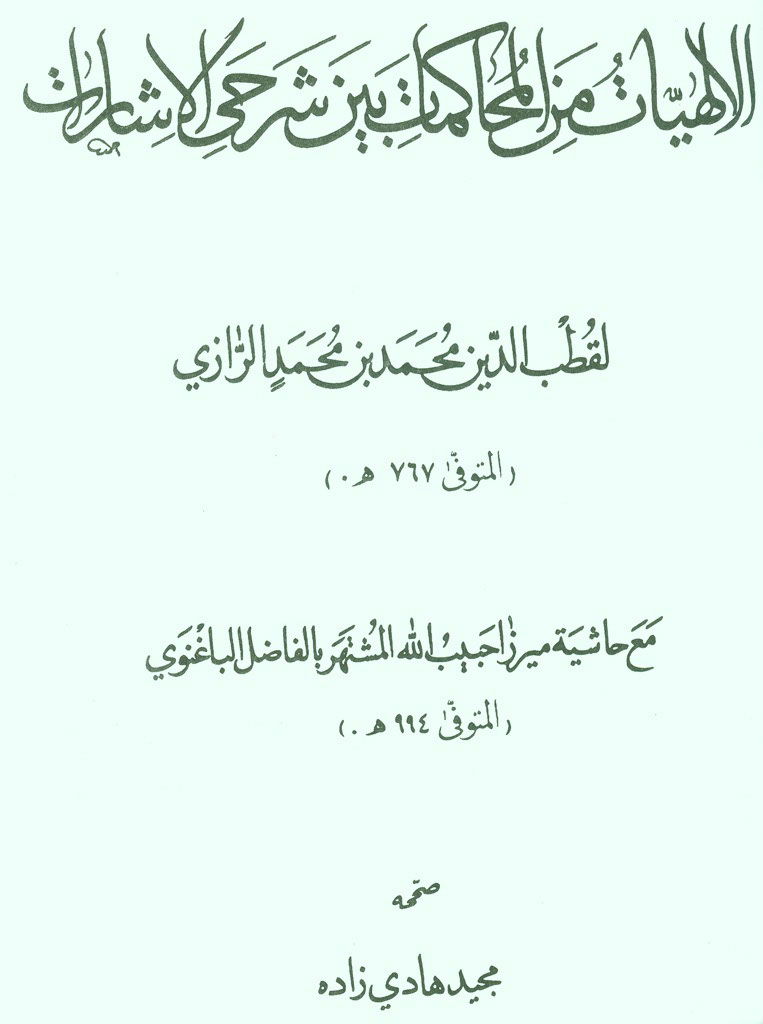 الالهيّاتُ مِنَ المُحاكماتِ بَينَ شَرحَيِ الاِشارات
لقُطْب الدّين مُحَمَد بن مُحَمَدٍ الرّازي
(المتوفّىٰ ٧٦٧ هـ.)
مَعَ حاشيَة ميرزا حَبيبُ الله المُشتهَر بالفاضل الباغْنَوَي
(المتوفّىٰ ٩٩٤ هـ.)
صحّحه
مجيد هادي زاده